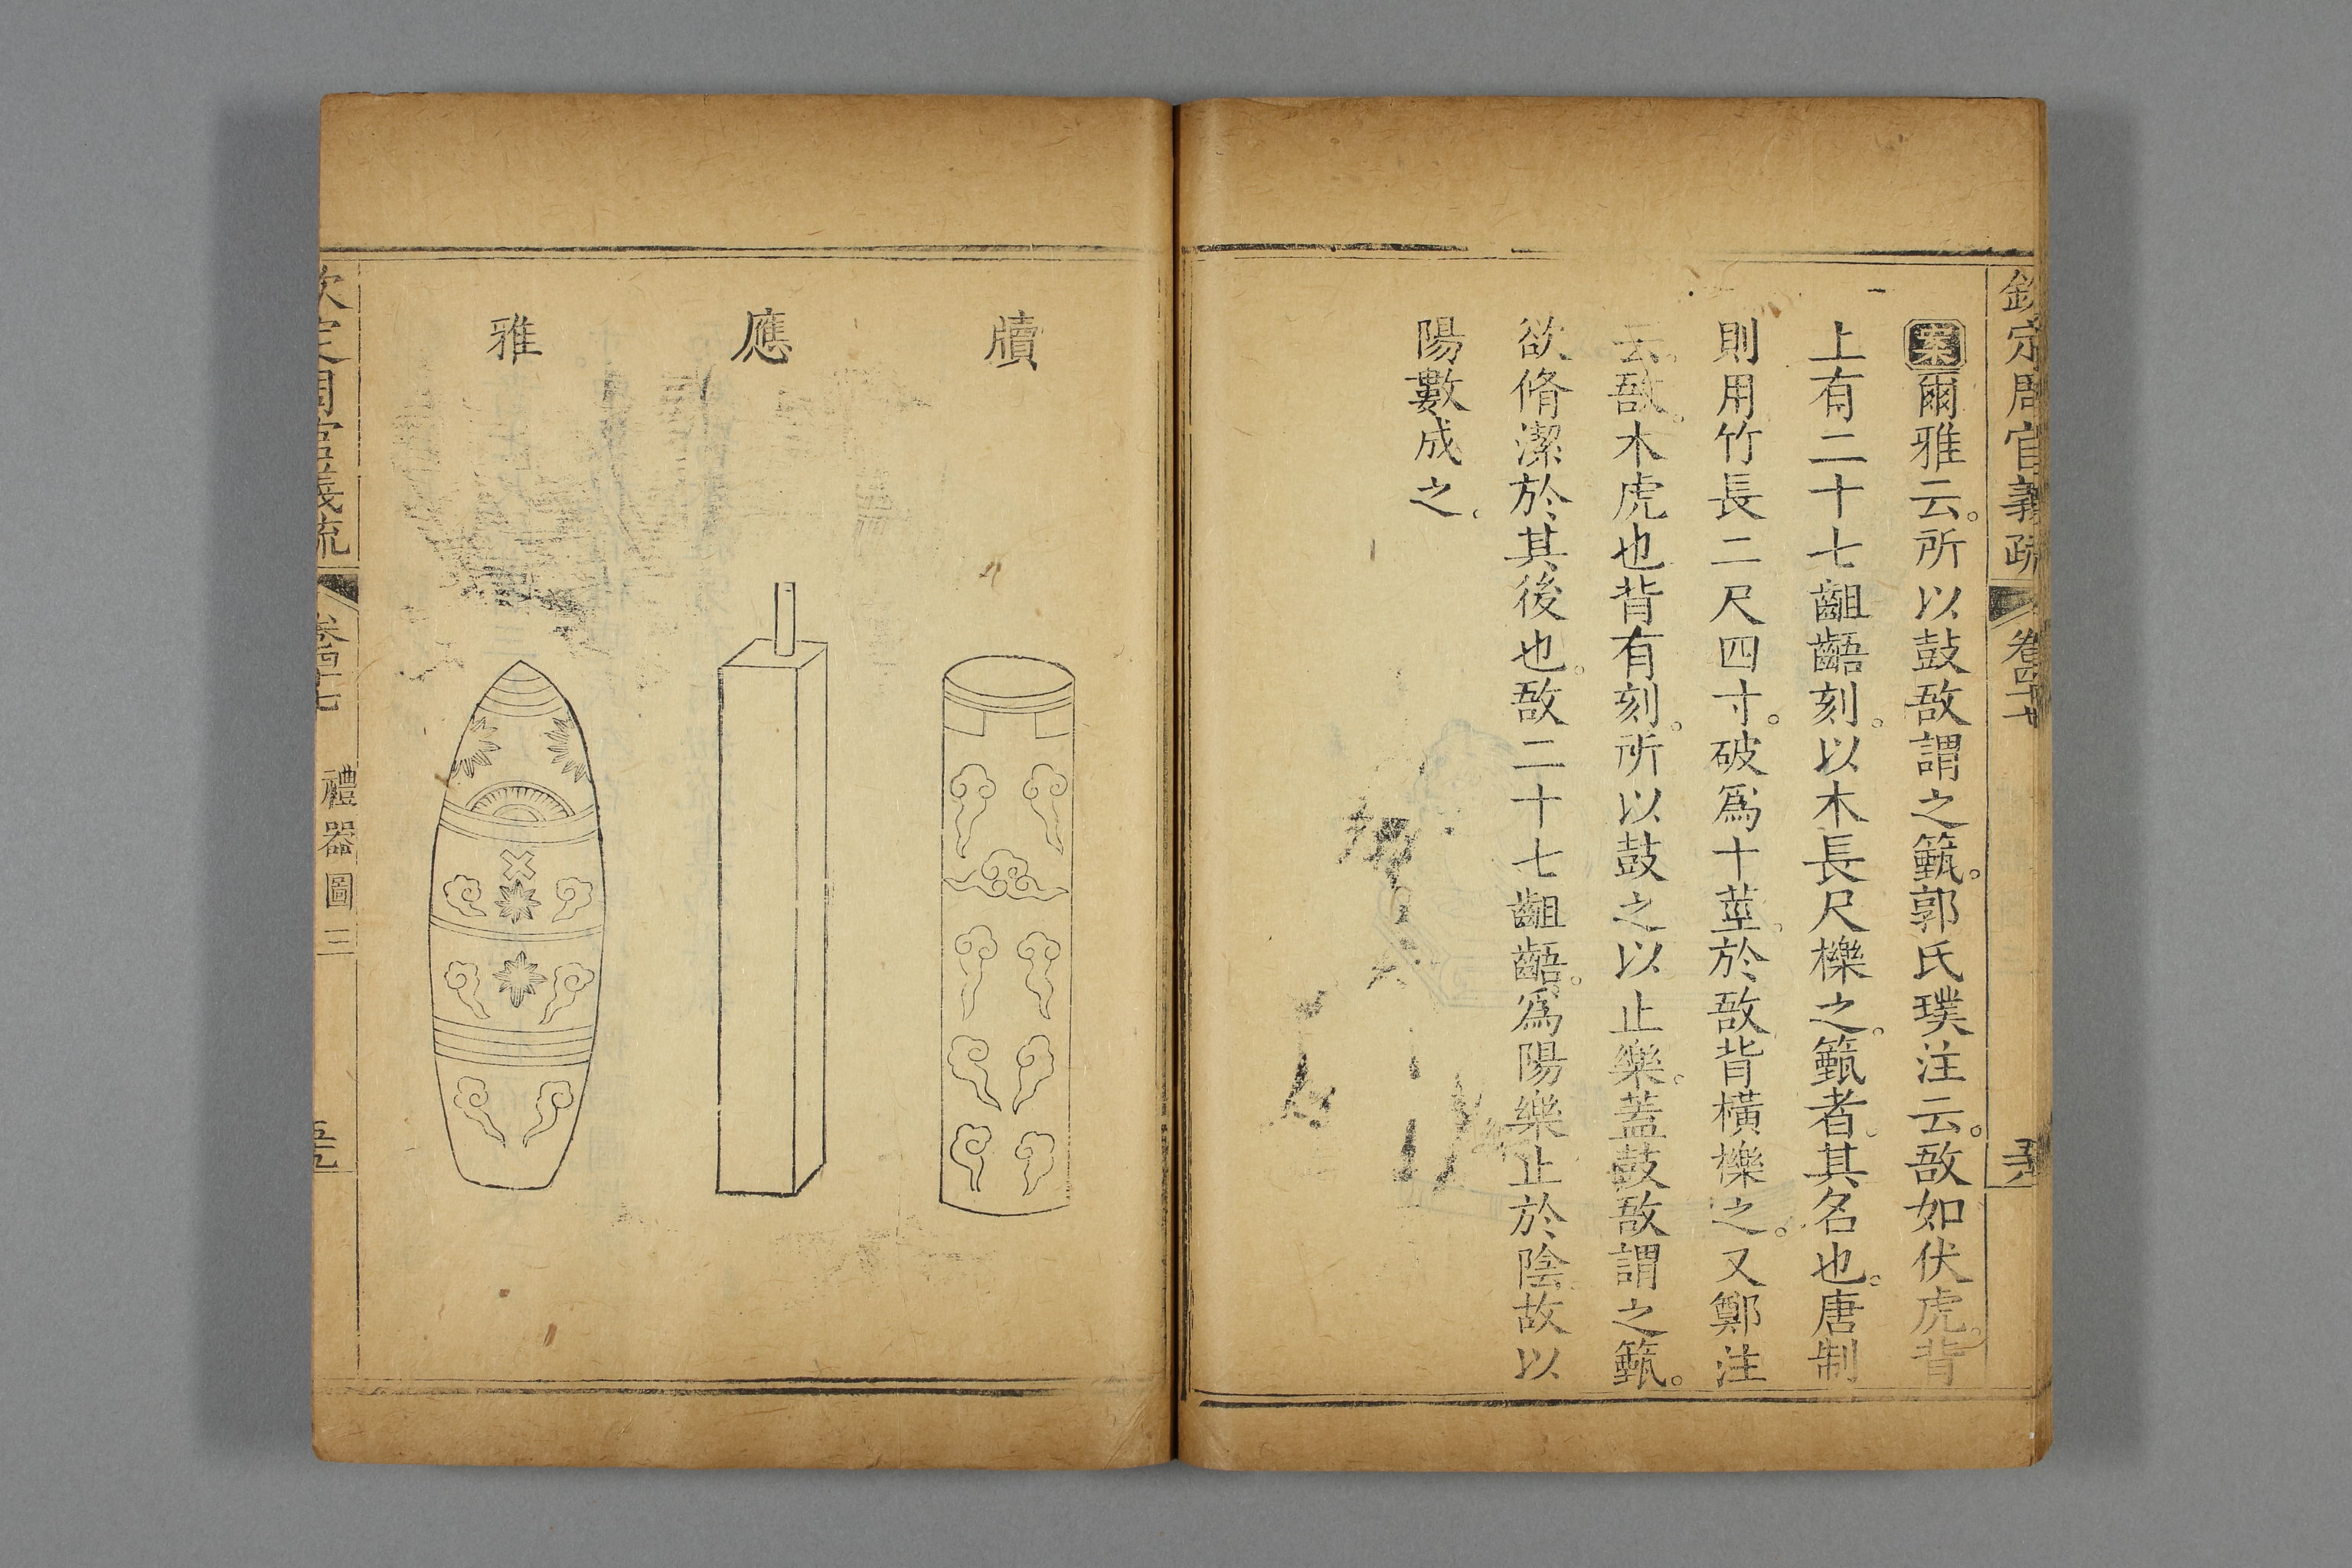 欽定周官義疏 卷四十七 五十八
案爾雅云。所以鼓敔謂之籈。郭氏璞注云。敔如伏虎。背
上有二十七齟齬刻。以木長尺櫟之。籈者。其名也。唐制
則用竹長二尺四寸。破爲十莖。於敔背橫櫟之。又鄭注
云。敔。木虎也背有刻。所以鼓之以止樂。蓋鼓敔謂之籈。
欲脩潔於其後也。敔二十七齟齬。爲陽樂止於陰故以
陽數成之。
牘
應
雅
欽定周官義疏 卷四十七 禮器圖三 五十九